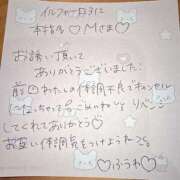 イルファー月子に
本指名♡Mさま♡
お誘い頂いて
ありがとうございました!
前回わたしの体調不良でキャンセル
になっちゃって ごめいね リベンジ
してくれてありがとう♡
お互い体調気をつけようたっ
♡ふうわ♡